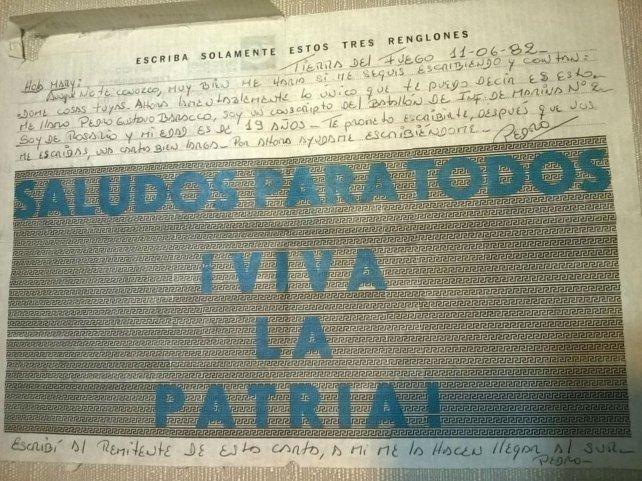 ESCRIBA SOLAMENTE ESTOS TRES RENGLONES
TIERRA DEL FUEGO 11-06-82-
HOLA MARY:
AUNQUE NO TE CONOZCO, MUY BIEN ME HARIA SI ME SEGUIS ESCRIBIENDO Y CONTAN:
DOME COSAS TUYAS. AHORA LAMENTABLEMENTE LO UNICO QUE TE PUEDO DECIR ES ESTO-
ME LLAMO PEDRO GUSTAVO BARACCO, SOY UN CONSCRIPTO DEL BATALLÓN DE INF. DE MARINA Nº 2-
SOY DE ROSARIO Y MI EDAD ES DE 19 AÑOS- TE PROMETO ESCRIBIRTE, DESPUÉS QUE VOS
ME ESCRIBAS, UNA CARTA BIEN LARGA- POR AHORA AYUDAME ESCRIBIENDOME-
PEDRO
SALUDOS PARA TODOS
¡VIVA
LA
PATRIA!
ESCRIBÍ AL REMITENTE DE ESTA CARTA, A MI ME LA HACEN LLEGAR AL SUR-
PEDRO-